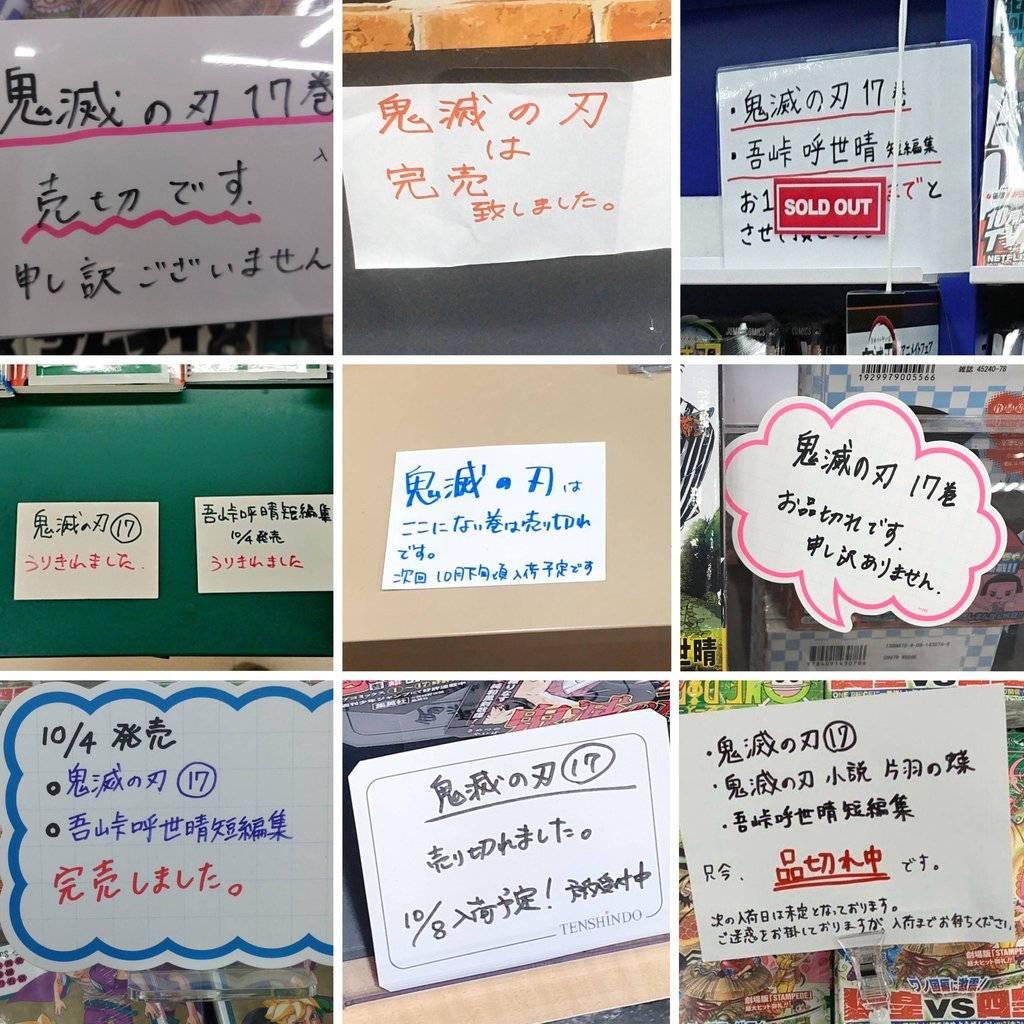 鬼滅の刃 17巻
入
売切です.
申し訳ございません
鬼滅の刃
は
完売
致しました。
・鬼滅の刃 17巻
・吾峠呼世晴 短編集
お1
までと
SOLD OUT
させて頂きます。
NETFLIX
JUMP COMICS
COMICS
アニメイトフェア
鬼滅の刃⑰
うりきれました.
吾峠呼世晴短編集
10/4発売
うりきれました
鬼滅の刃は
ここにない巻は売り切れ
です。
次回 10月下旬頃入荷予定です
雑誌 45240-78
1929979005566
鬼滅の刃 17巻
お品切れです.
申し訳ありません.
世晴
10/4 発売
鬼滅の刃 ⑰
吾峠呼世晴短編集
完売しました。
鬼滅の刃⑰
売り切れました。
10/8入荷予定! 予約受付中
TENSHINDO
・鬼滅の刃⑰
・鬼滅の刃 小説 片羽の蝶
・吾峠呼世晴短編集
只今、品切れ中です。
次の入荷日は未定となっております。
ご迷惑をお掛しておりますが、入荷までお待ちください
劇場版『STAMPEDE』
劇場版『STAMPEDE』
ワノ国編に激震!!
VS四